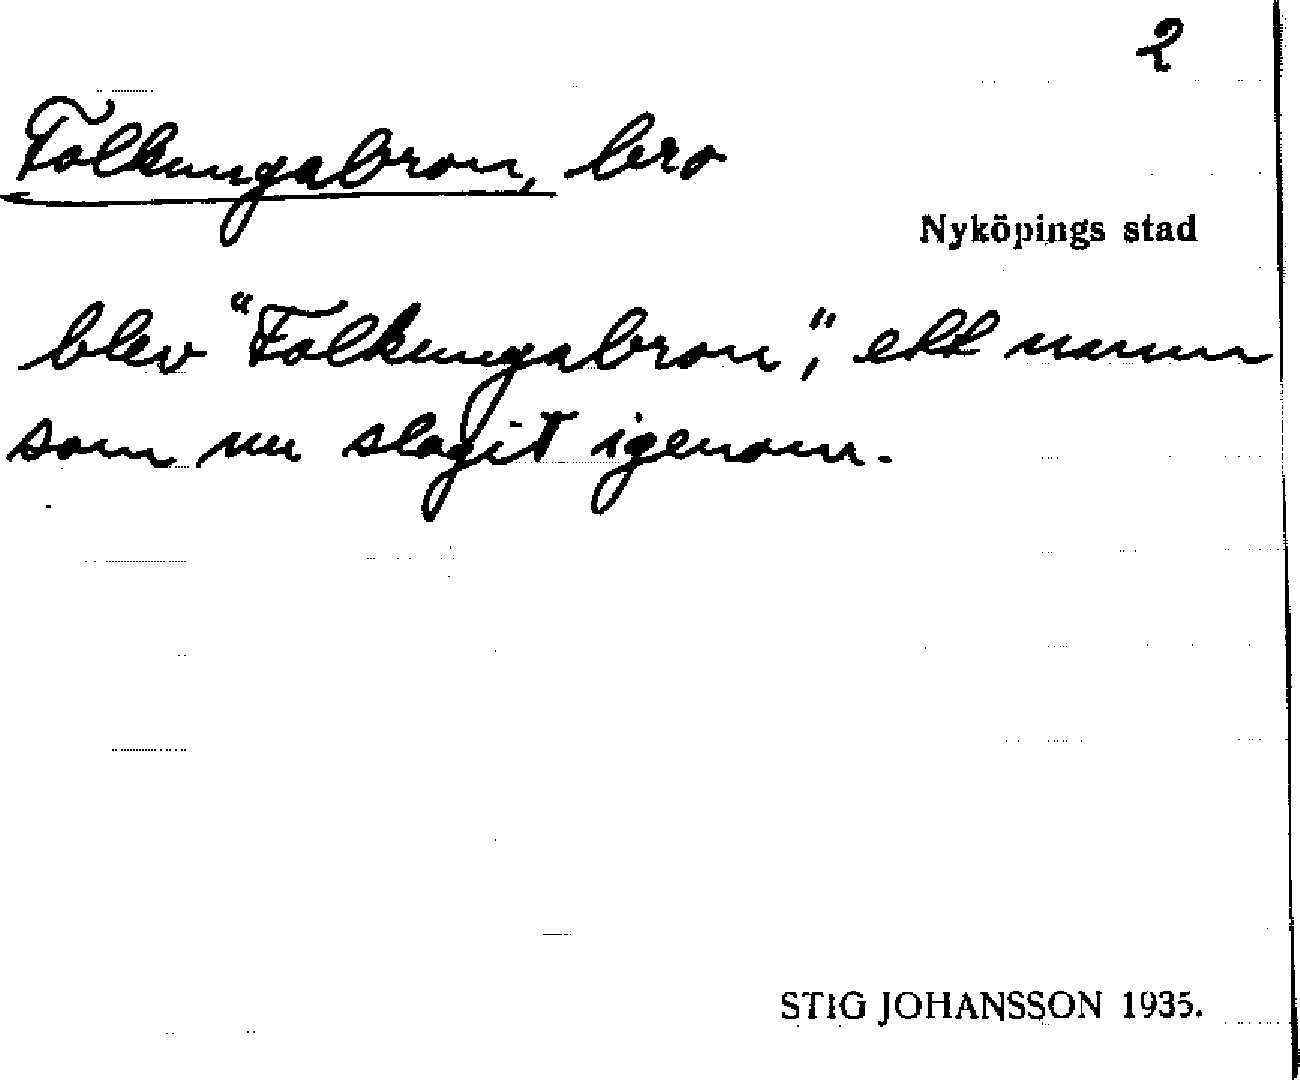 2
Folkungabron, bro
Nyköpings stad
blev "Folkungabron", ett namn
som nu slagit igenom.
STIG JOHANSSON 1935.